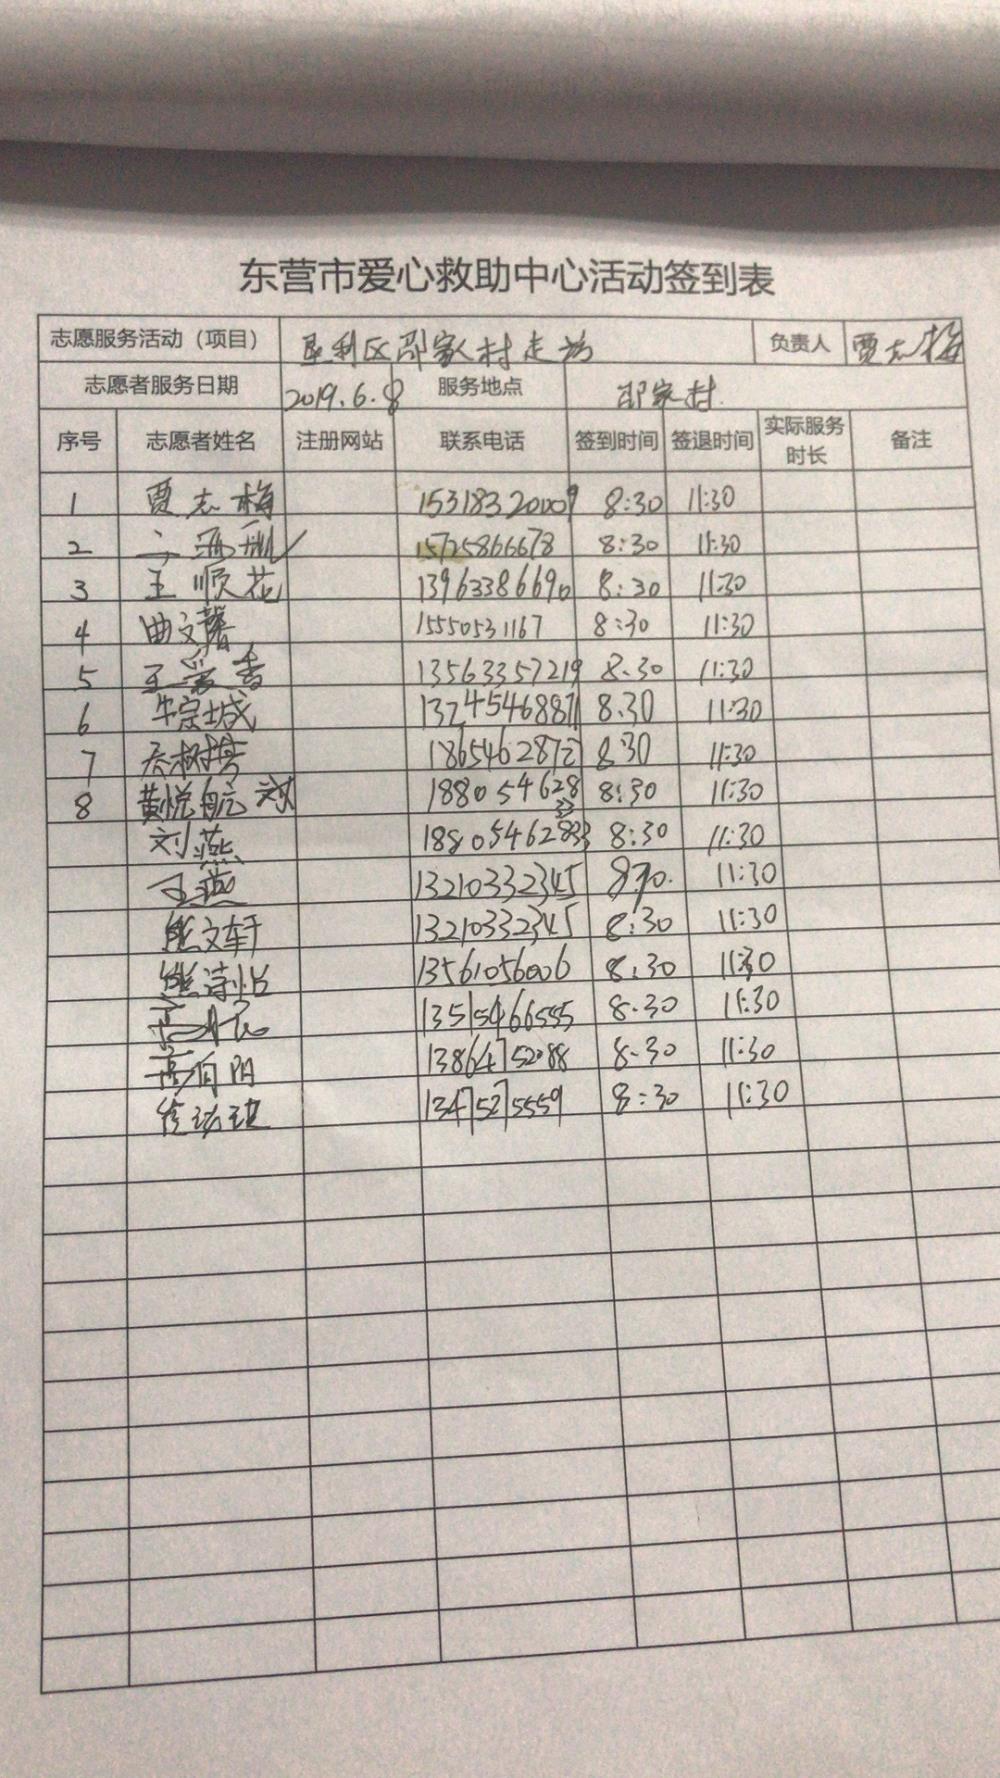 东营市爱心救助中心活动签到表
志愿服务活动（项目） 垦利区邵家村走访 负责人 贾志梅
志愿者服务日期 2019.6.8 服务地点 邵家村
序号 志愿者姓名 注册网站 联系电话 签到时间 签退时间 实际服务时长 备注
1 贾志梅 15318320009 8:30 11:30
2 15725866678 8:30 11:30
3 王顺花 13963386690 8:30 11:30
4 曲文馨 15550531167 8:30 11:30
5 王爱香 13563357219 8.30 11:30
6 牛宗城 8.30 11:30
7 8:30 11:30
8 黄悦航 18805462833 8:30 11:30
刘燕 18805462833 8:30 11:30
王燕 13210332345 11:30
熊文轩 13210332345 8:30 11:30
熊诗怡 13561056006 8:30 11:30
13515466555 8.30 11:30
13864752088 8.30 11:30
13475275559 8:30 11:30